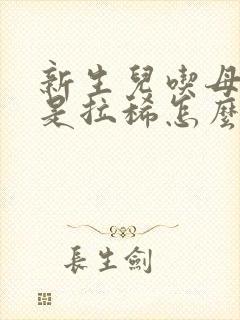 新生兒喫母
是拉稀怎麼
長生劍